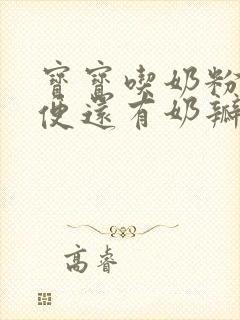 寶寶喫奶粉
便還有奶瓣
高睿